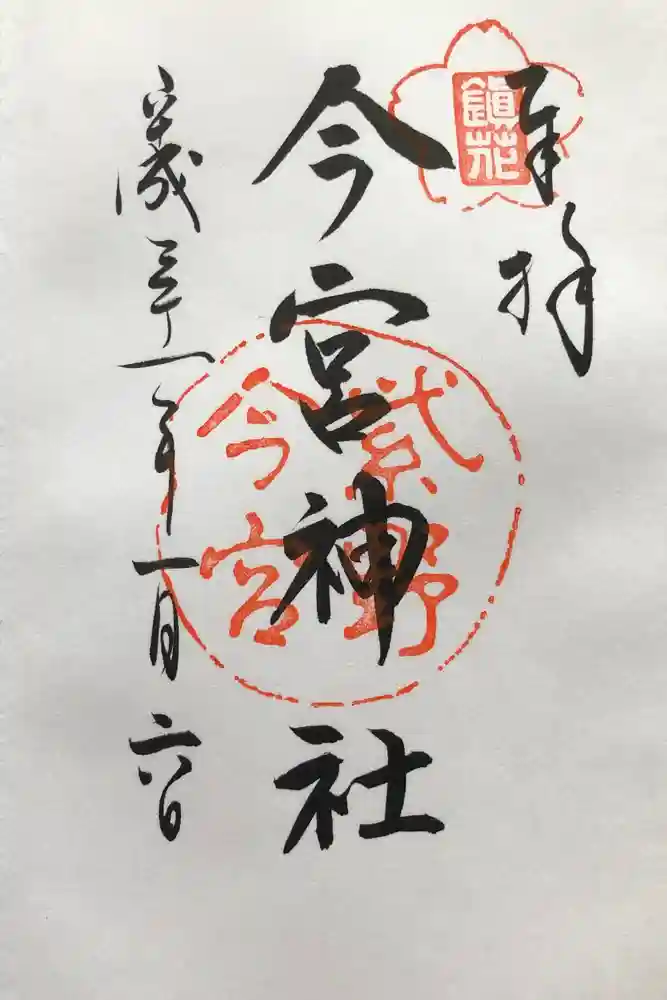 奉拝
鎭花
今宮神社
紫野
今宮
平成三十一年一月六日